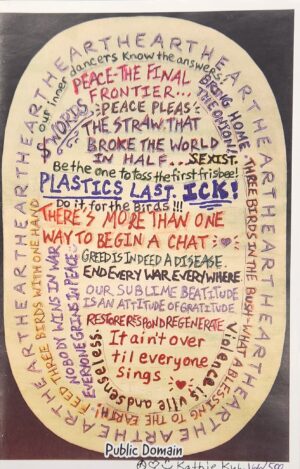 HEARTHEARTHEARTHEARTHEARTHEARTHEARTHEARTHEARTHEARTH
our inner dancers know the answers.
PEACE-THE FINAL
FRONTIER...
SWORDS
PEACE PLEAS
BRING HOME
THE ORISON!
THE STRAW THAT
BROKE THE WORLD
IN HALF... SEXIST.
Be the one to toss the first frisbee!
PLASTICS LAST. ICK!
Do it for the Birds!!!
THERE'S MORE THAN ONE
WAY TO BEGIN A CHAT
GREED IS INDEED A DISEASE.
END EVERY WAR EVERYWHERE.
OUR SUBLIME BEATITUDE
IS AN ATTITUDE OF GRATITUDE
RESTORE RESPOND REGENERATE
It ain't over
til everyone
sings
FEED THREE BIRDS WITH ONE HAND
NOBODY WINS IN WAR
EVERYONE GRIEVES IN PEACE
Violence is vile and senseless.
THREE BIRDS IN THE BUSH-WHAT A BLESSING TO THE EARTH
Public Domain
Kathie